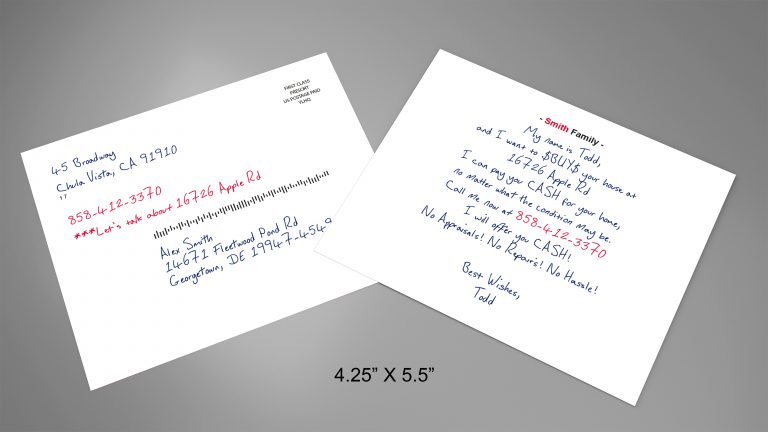 FIRST CLASS
PRESORT
US POSTAGE PAID
YLHQ
45 Broadway
Chula Vista, CA 91910
858-4-12-3370
***Let's talk about 16726 Apple Rd
Alex Smith
14671 Fleetwood Pond Rd
Georgetown, DE 19947-4549
- Smith Family -
My name is Todd,
and I want to $BUY$ your house at
16726 Apple Rd
I can pay you CASH for your home,
no matter what the condition may be.
Call me now at 858-4-12-3370
I will offer you CASH!
No Appraisals! No Repairs! No Hassle!
Best Wishes,
Todd
4.25” X 5.5”